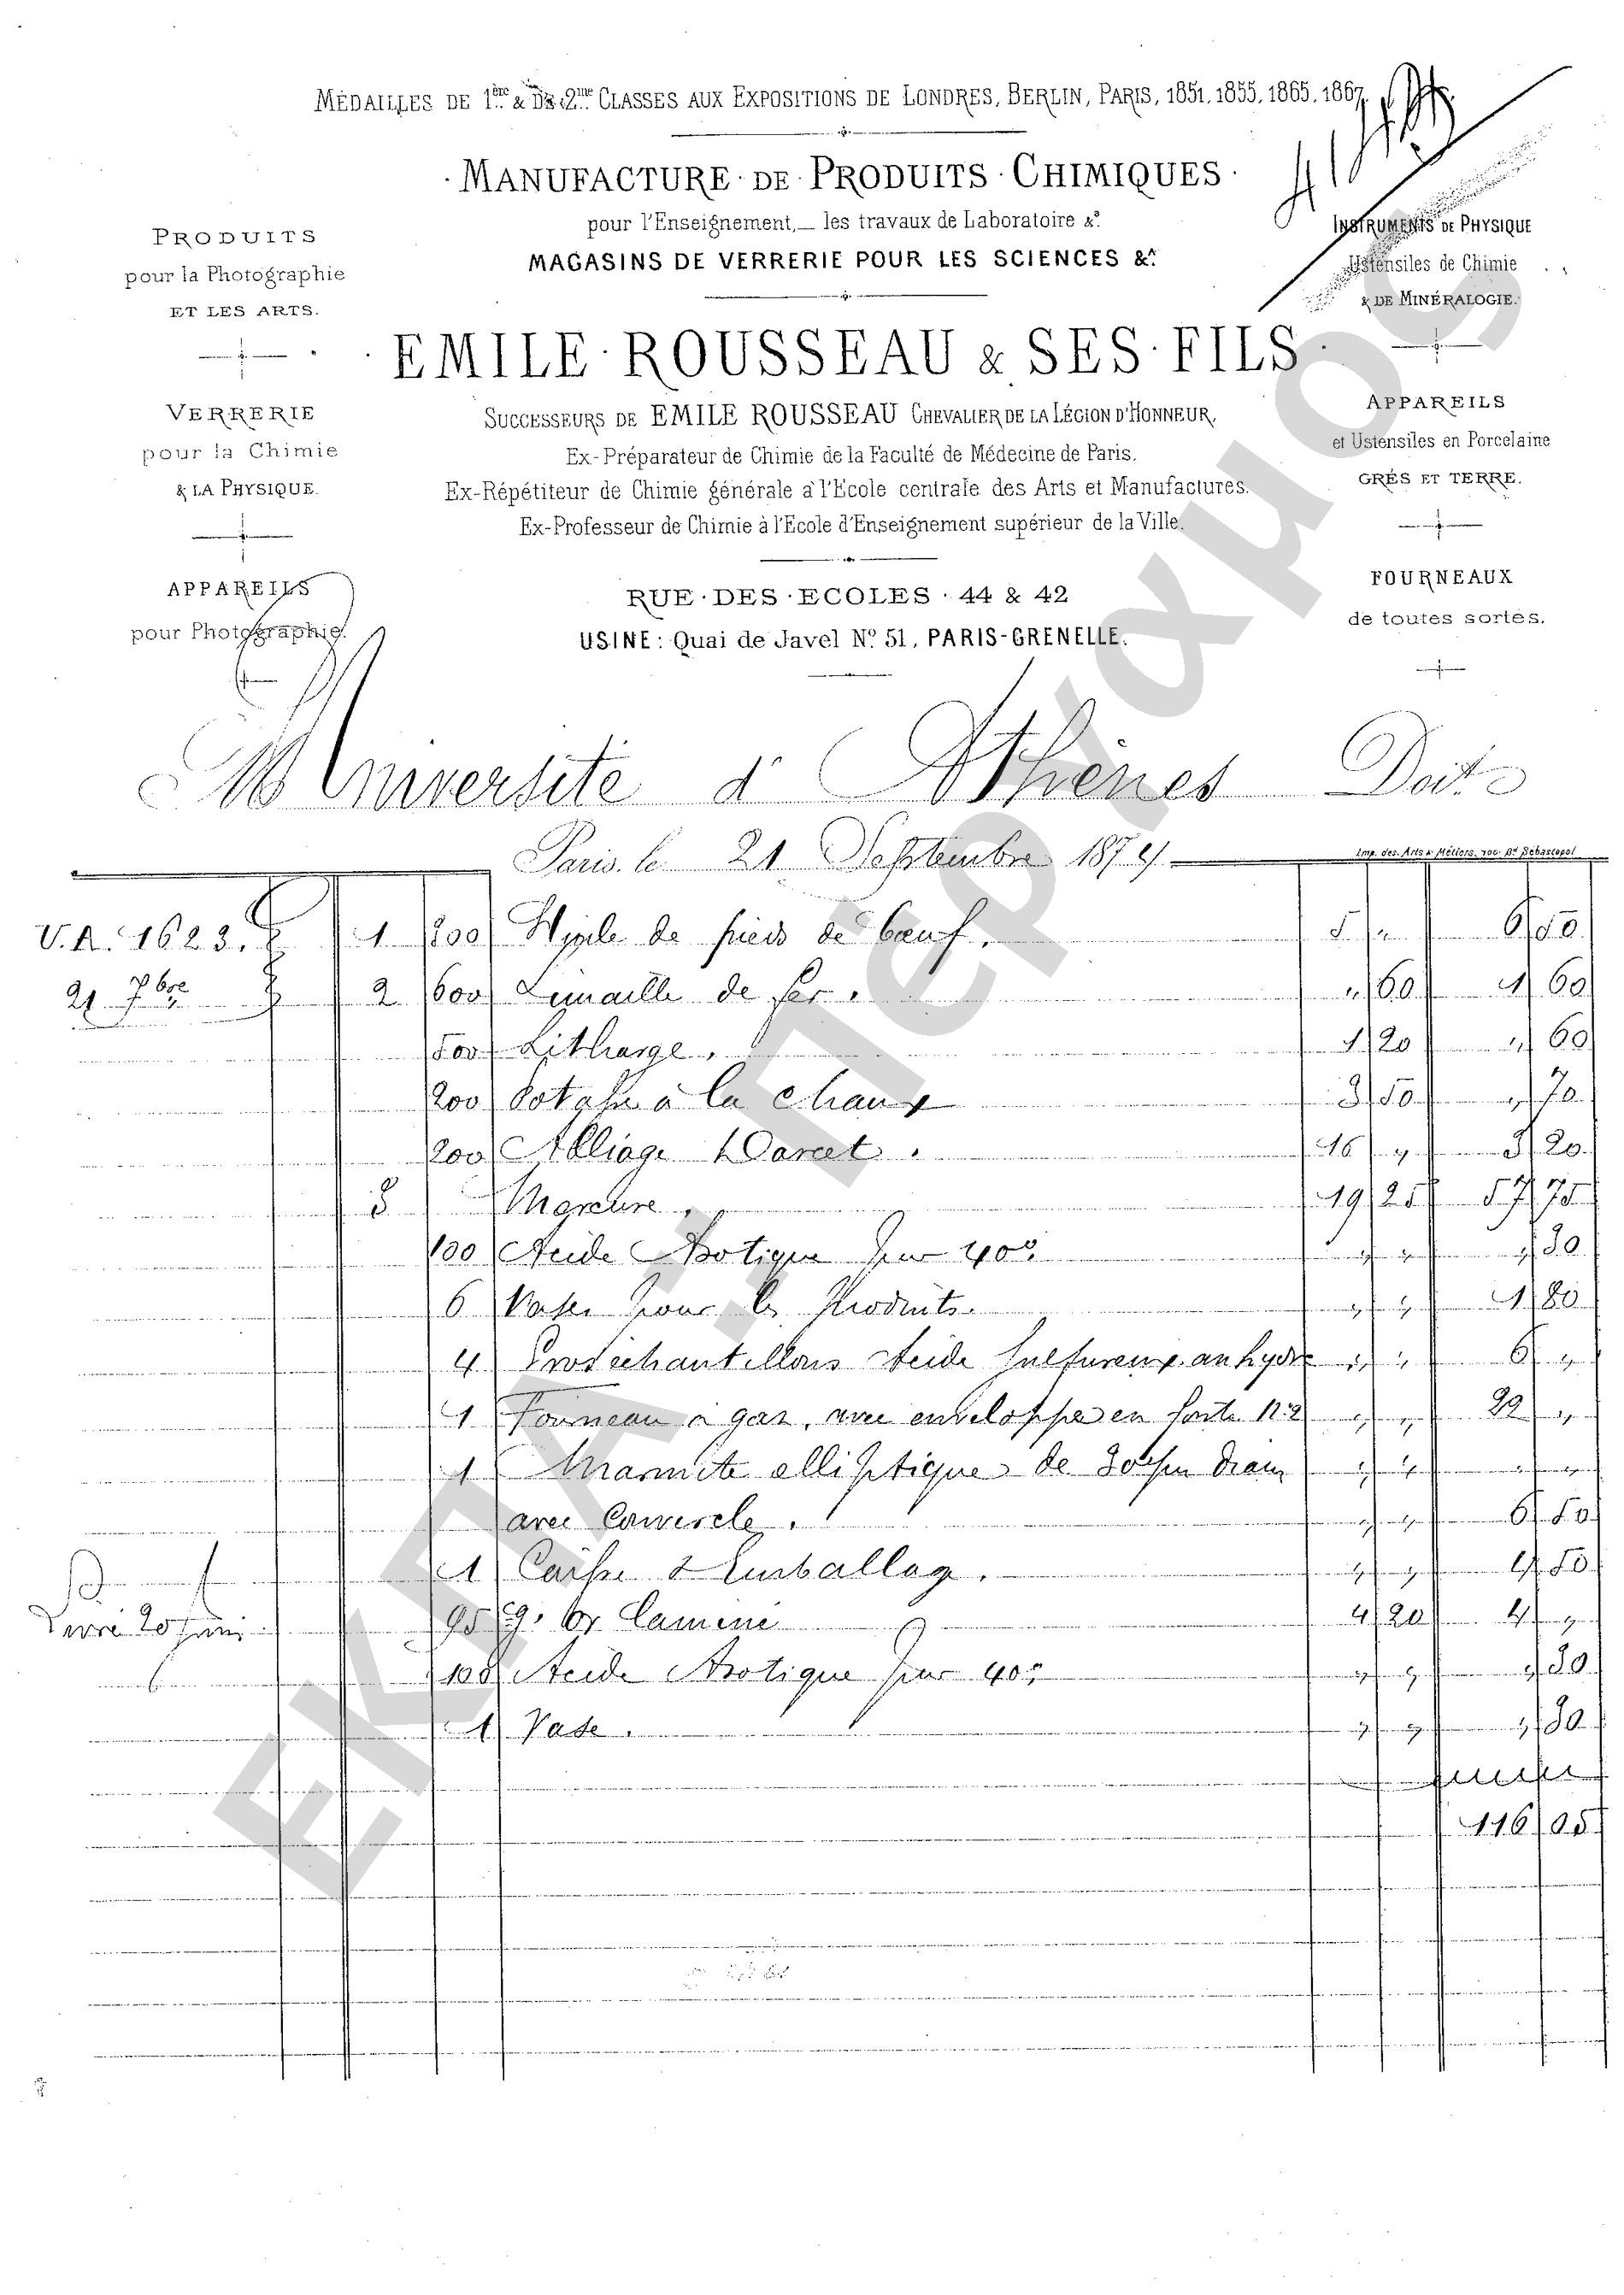 MÉDAILLES DE 1ère & DE 2me CLASSES AUX EXPOSITIONS DE LONDRES, BERLIN, PARIS, 1851, 1855, 1865, 1867
· MANUFACTURE · DE · PRODUITS · CHIMIQUES ·
pour l'Enseignement,— les travaux de Laboratoire &a.
MAGASINS DE VERRERIE POUR LES SCIENCES &a.
PRODUITS
pour la Photographie
ET LES ARTS.
VERRERIE
pour la Chimie
& LA PHYSIQUE.
APPAREILS
pour Photographie.
EMILE · ROUSSEAU & SES · FILS
SUCCESSEURS DE EMILE ROUSSEAU CHEVALIER DE LA LÉGION D'HONNEUR,
Ex-Préparateur de Chimie de la Faculté de Médecine de Paris.
Ex-Répétiteur de Chimie générale à l'Ecole centrale des Arts et Manufactures.
Ex-Professeur de Chimie à l'Ecole d'Enseignement supérieur de la Ville.
RUE · DES · ECOLES · 44 & 42
USINE : Quai de Javel No. 51, PARIS-GRENELLE.
INSTRUMENTS DE PHYSIQUE
Ustensiles de Chimie
& DE MINÉRALOGIE.
APPAREILS
et Ustensiles en Porcelaine
GRÉS ET TERRE.
FOURNEAUX
de toutes sortes.
Université d'Athènes Doit
Paris, le 21 Septembre 187
Imp. des Arts & Métiers, 100 Bd Sébastopol
V.A. 1623. 1 200 Huile de pieds de boeuf. 5 " 6 50
21 7bre 2 600 Limaille de fer. " 60 1 60
500 Litharge. 1 20 " 60
200 Potasse à la chaux 3 50 " 70
200 Alliage Darcet. 16 " 3 20
3 Mercure. 19 25 57 75
100 Acide Azotique pur 40° " " " 30
6 Vases pour les Produits. " " 1 80
4 Gros échantillons Acide sulfureux anhydre " " 6 "
1 Fourneau à gaz, avec enveloppe en fonte N.2 " " 22 "
1 Marmite elliptique de " " " "
avec Couvercle. " " 6 50
1 Caisse & Emballage. " " 4 50
livré 20 juin 95 Or laminé 4 20 4 "
100 Acide Azotique pur 40° " " " 30
1 Vase. " " " 30
116 05
ΕΚΠΑ - Πέργαμος